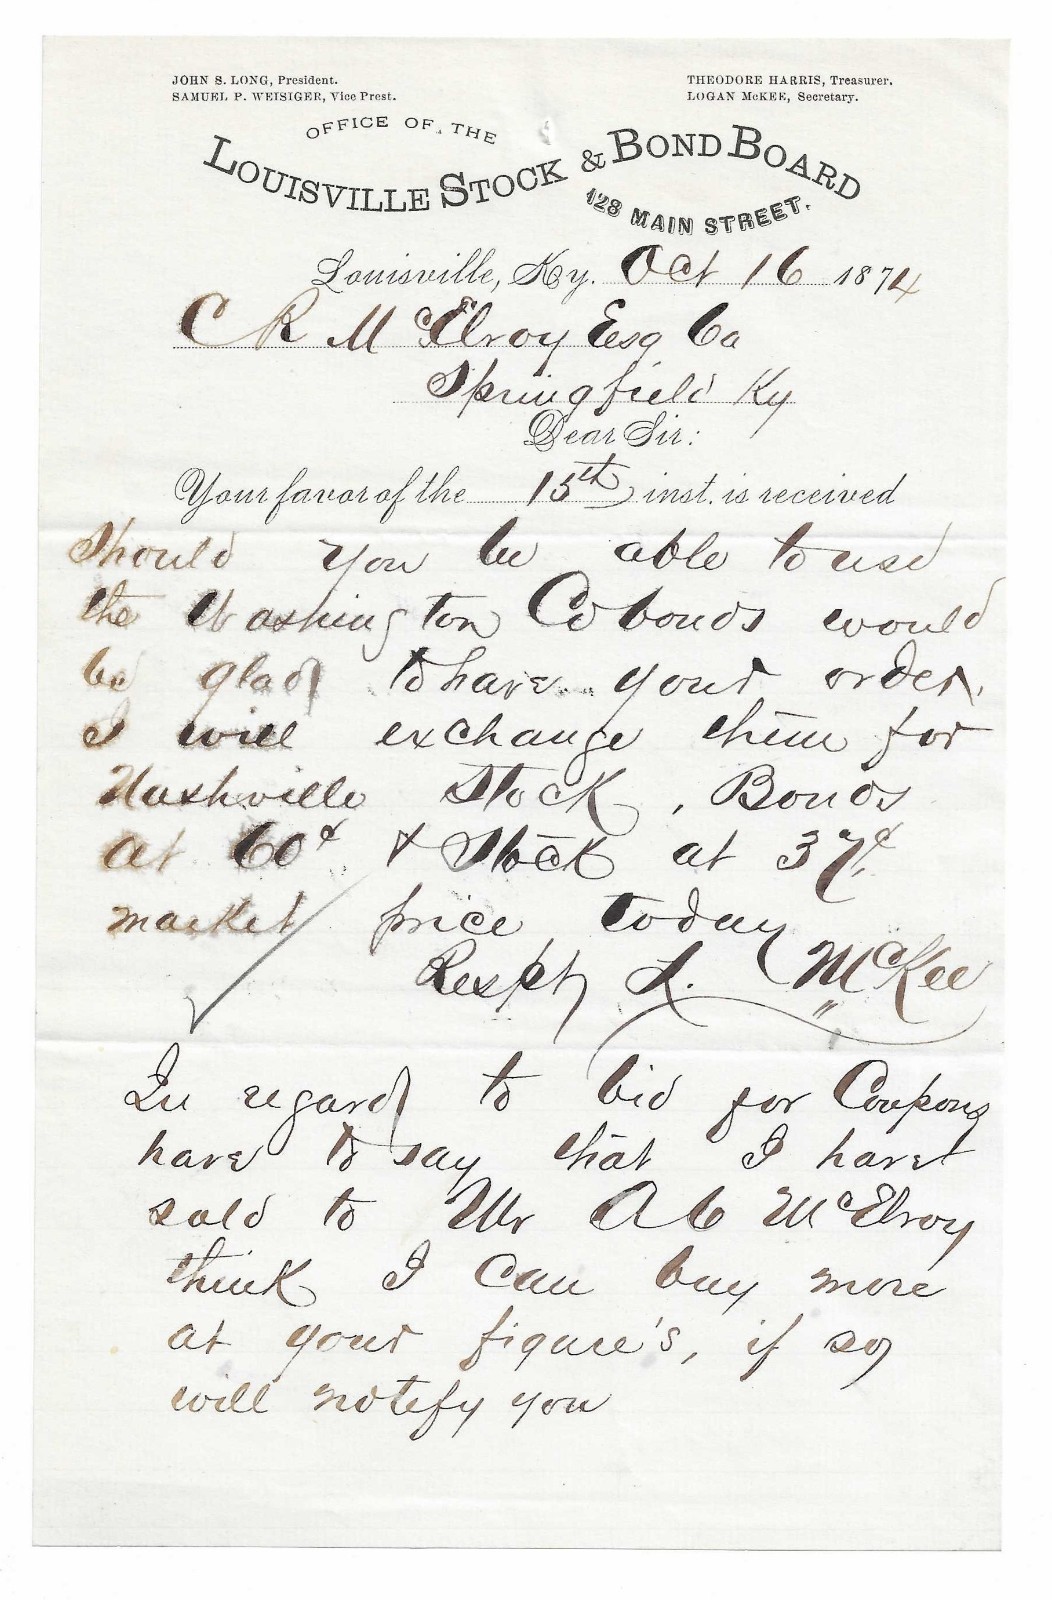 JOHN S. LONG, President.
SAMUEL P. WEISIGER, Vice Prest.
THEODORE HARRIS, Treasurer.
LOGAN McKEE, Secretary.
OFFICE OF THE
LOUISVILLE STOCK & BOND BOARD
128 MAIN STREET.
Louisville, Ky. Oct 16 1874
C R McElroy Esq Ca
Springfield Ky
Dear Sir:
Your favor of the 15th inst. is received
Should you be able to use
the Washington Co bonds would
be glad to have your order.
I will exchange them for
Nashville Stock, Bonds
at 60¢ & Stock at 37¢
market price today
Respty L. McKee
In regard to bid for Coupons
have to say that I have
sold to Mr A C McElroy
think I can buy more
at your figure's, if so
will notify you